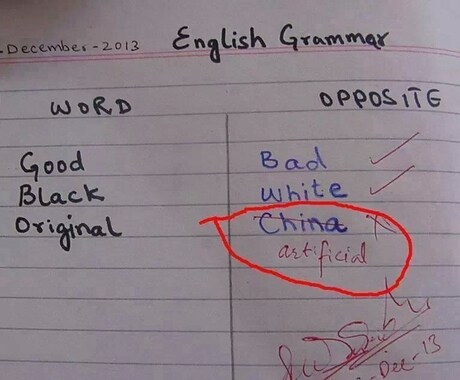 December-2013
English Grammar
WORD OPPOSITE
Good Bad
Black White
Original China
artificial
Dec-13